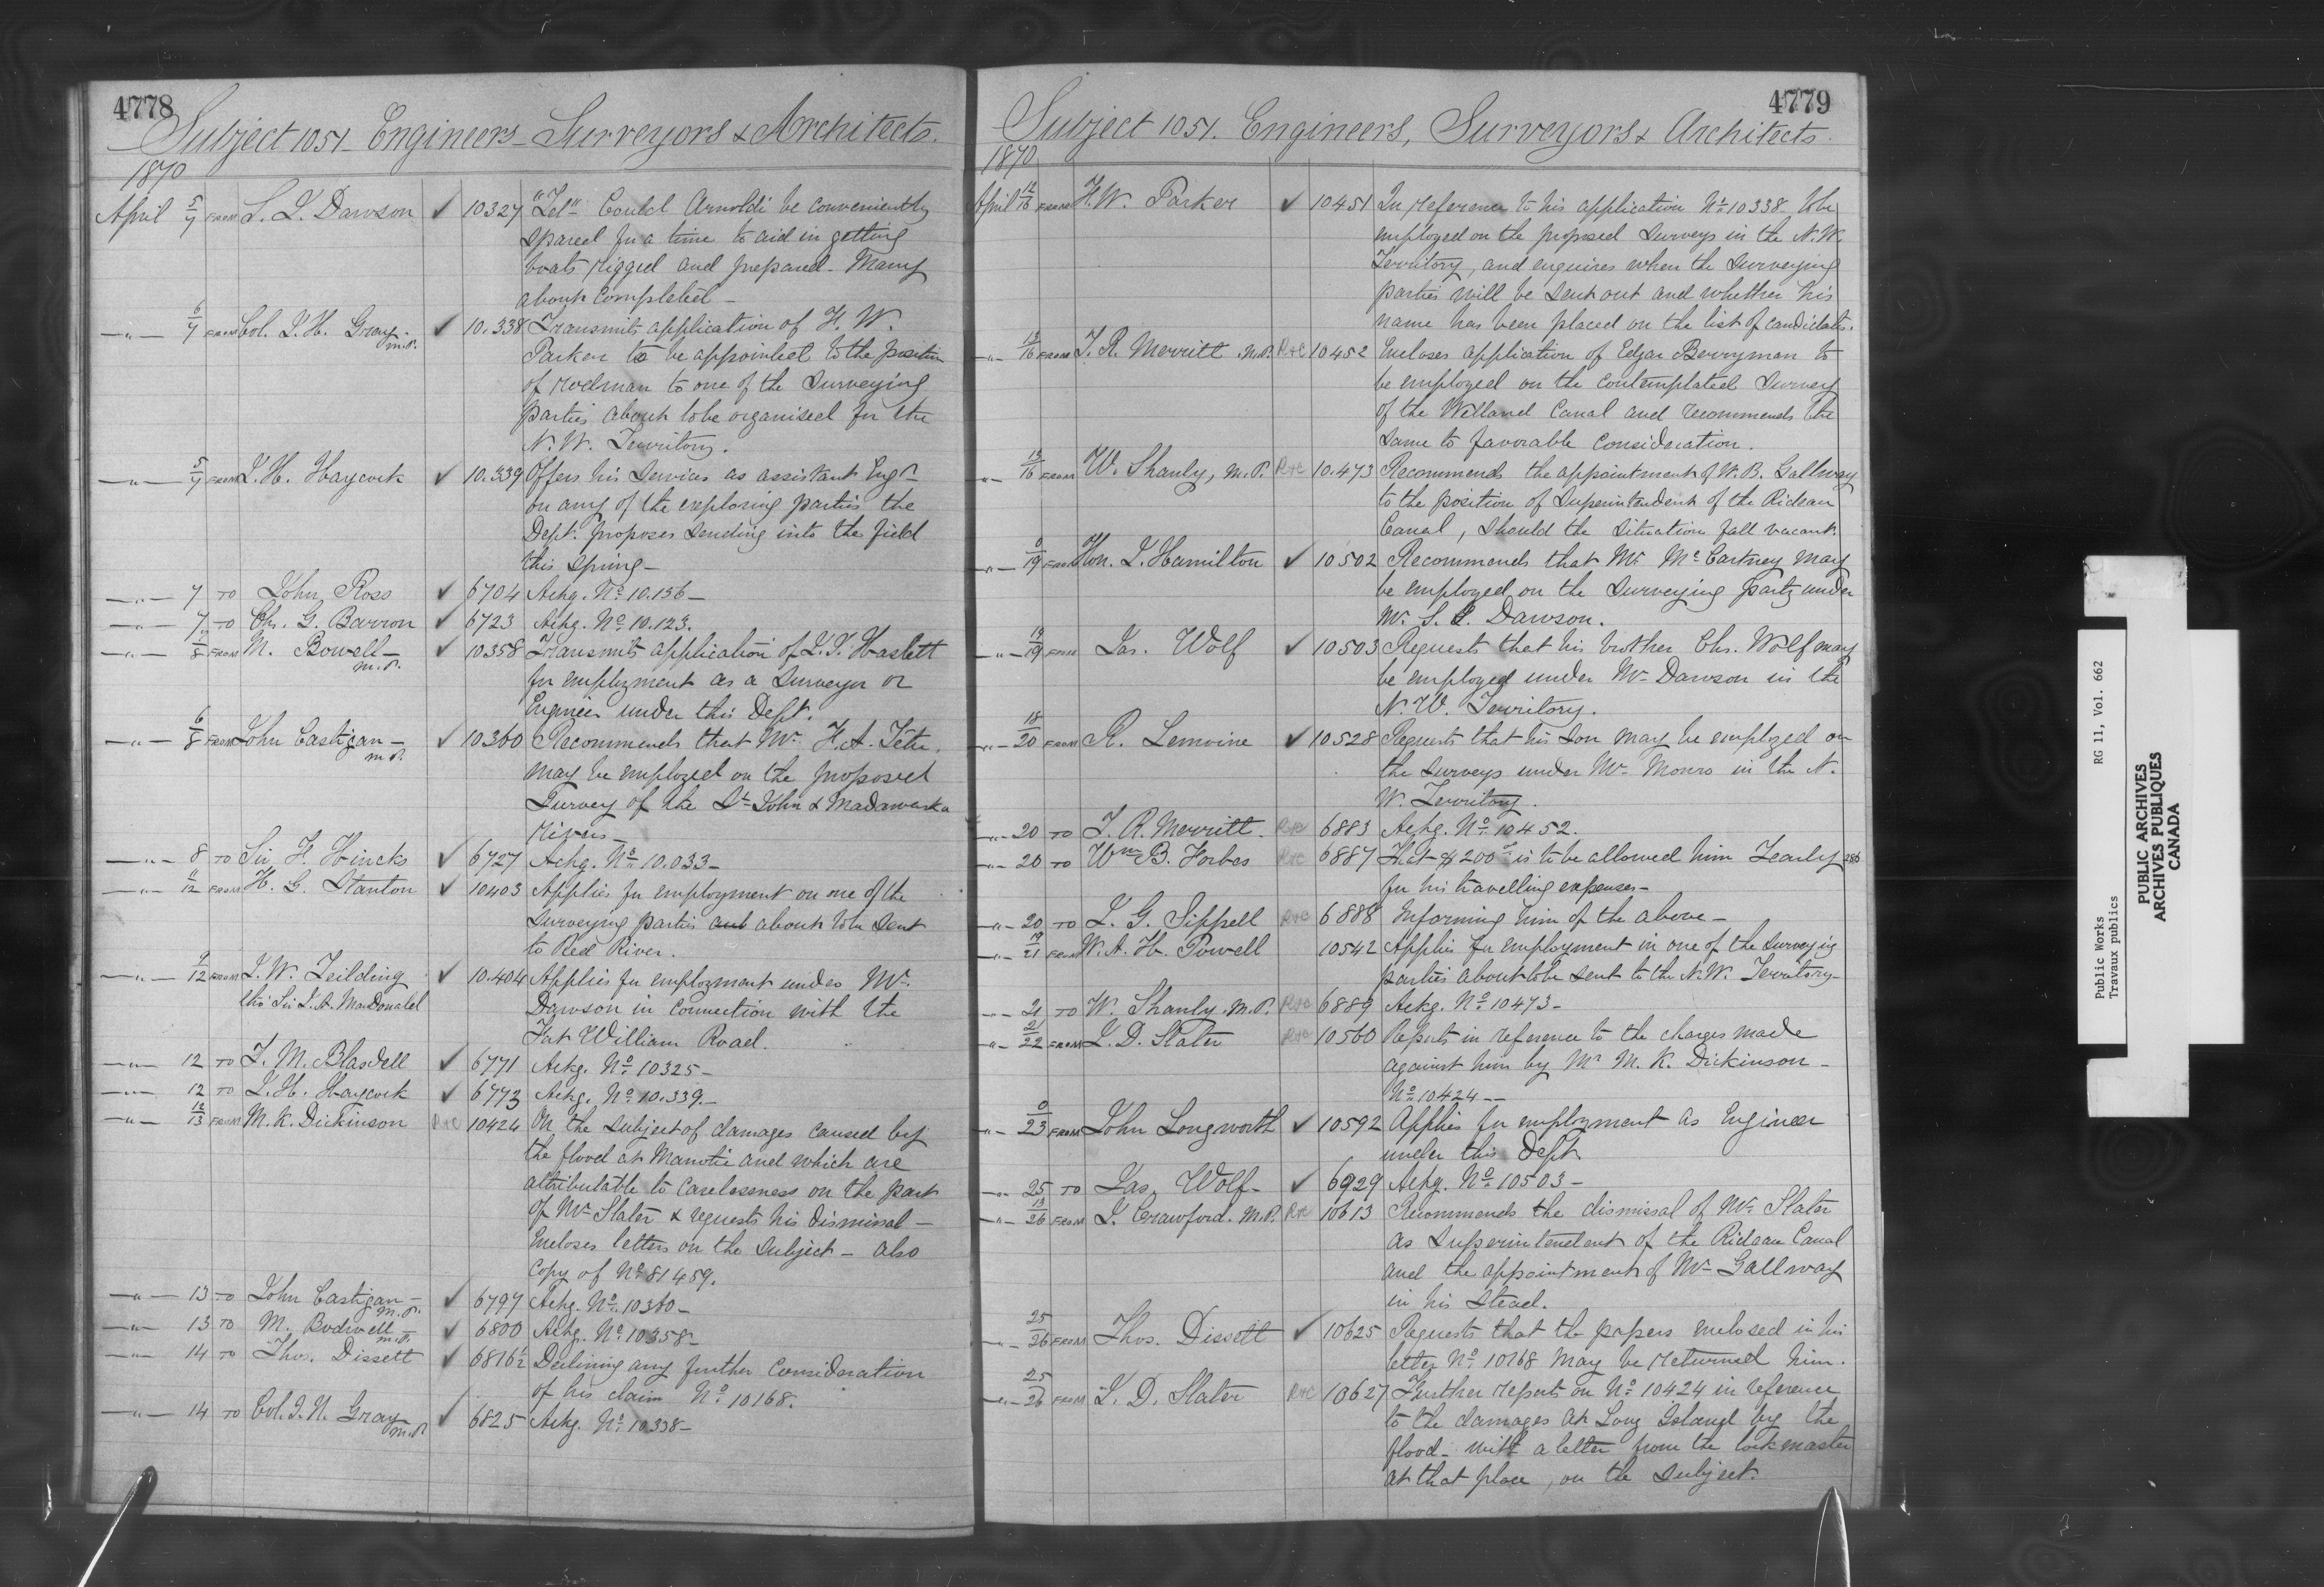 4778
Subject 1051 - Engineers - Surveyors & Architects.
1870
April 5/7 FROM S. J. Dawson ✓ 10327 "Tel" Could Arnoldi be conveniently
spared for a time to aid in getting
boats rigged and prepared - Many
about completed -
-"- 6/7 FROM Col. J. H. Gray M.P. ✓ 10.338 Transmits application of H. W.
Parker to be appointed to the position
of rodman to one of the Surveying
parties about to be organised for the
N. W. Territory.
-"- 5/7 FROM J. H. Haycock ✓ 10.339 Offers his Services as assistant Engr
on any of the exploring parties the
Dept. proposes sending into the field
this Spring -
-"- 7 TO John Ross ✓ 6704 Ackg. No. 10.156 -
-"- 7 TO Ch. G. Barron ✓ 6723 Ackg. No. 10.123.
-"- 7/8 FROM M. Bowell - M.P. ✓ 10358 Transmits application of J. J. Haslett
for employment as a Surveyor or
Engineer under this Dept.
-"- 6/8 FROM John Costigan - M.P. ✓ 10360 Recommends that Mr. H. A. Tétu
may be employed on the proposed
Survey of the St. John & Madawaska
Rivers -
-"- 8 TO Sir F. Hincks ✓ 6727 Ackg. No. 10.033 -
-"- 11/12 FROM H. G. Stanton ✓ 10403 Applies for employment on one of the
Surveying parties about to be sent
to Red River.
-"- 9/12 FROM J. W. Feilding ✓ 10.404 Applies for employment under Mr.
thro' Sir J. A. MacDonald Dawson in connection with the
Fort William Road.
-"- 12 TO T. M. Blasdell ✓ 6771 Ackg. No. 10325 -
-"- 12 TO J. H. Haycock ✓ 6773 Ackg. No. 10.339. -
-"- 12/13 FROM M. K. Dickinson R&C 10424 On the Subject of damages caused by
the flood at Manotic and which are
attributable to carelessness on the part
of Mr. Slater & requests his dismissal -
Encloses letters on the Subject - also
copy of No. 81459.
-"- 13 TO John Costigan - M.P. ✓ 6797 Ackg. No. 10360 -
-"- 13 TO M. Bodwell - M.P. ✓ 6800 Ackg. No. 10358 -
-"- 14 TO Thos. Dissett ✓ 6816½ Declining any further consideration
of his claim No. 10168.
-"- 14 TO Col. J. H. Gray M.P. ✓ 6825 Ackg. No. 10338 -
4779
Subject 1051. Engineers, Surveyors & Architects.
1870
April 14/16 FROM H. W. Parker ✓ 10451 In reference to his application No. 10338 to be
employed on the proposed Surveys in the N. W.
Territory, and enquires when the Surveying
parties will be sent out and whether his
name has been placed on the list of candidates.
-"- 13/16 FROM T. R. Merritt M.P. R&C 10452 Encloses application of Edgar Berryman to
be employed on the contemplated Survey
of the Welland Canal and recommends the
Same to favorable consideration.
-"- 13/16 FROM W. Shanly, M.P. R&C 10.473 Recommends the appointment of W. B. Gallway
to the position of Superintendent of the Rideau
Canal, should the Situation fall vacant.
-"- 9/19 FROM Hon. J. Hamilton ✓ 10502 Recommends that Mr. McCartney may
be employed on the Surveying party under
Mr. S. J. Dawson.
-"- 13/19 FROM Jas. Wolf ✓ 10503 Requests that his brother Chs. Wolf may
be employed under Mr. Dawson in the
N. W. Territory.
-"- 18/20 FROM R. Lemoine ✓ 10528 Requests that his Son may be employed on
the Surveys under Mr. Monro in the N.
W. Territory.
-"- 20 TO T. R. Merritt. R&C 6883 Ackg. No. 10452.
-"- 20 TO Wm B. Forbes R&C 6887 That $200 is to be allowed him Yearly 286
for his travelling expenses -
-"- 20 TO J. G. Sippell R&C 6888 Informing him of the above -
-"- 19/21 FROM W. A. H. Powell 10542 Applies for employment in one of the Surveying
parties about to be sent to the N.W. Territory -
-"- 21 TO W. Shanly M.P. R&C 6889 Ackg. No. 10473 -
-"- 21/22 FROM J. D. Slater R&C 10560 Reports in reference to the charges made
against him by Mr. M. K. Dickinson -
No. 10424 --
-"- 9/23 FROM John Longworth ✓ 10592 Applies for employment as Engineer
under this Dept.
-"- 25 TO Jas. Wolf - ✓ 6929 Ackg. No. 10503 -
-"- 13/26 FROM J. Crawford. M.P. R&C 10613 Recommends the dismissal of Mr. Slater
as Superintendent of the Rideau Canal
and the appointment of Mr. Gallway
in his Stead.
-"- 25/26 FROM Thos. Dissett ✓ 10625 Requests that the papers enclosed in his
letter No. 10168 may be returned him.
-"- 25/26 FROM J. D. Slater R&C 10627 Further reports on No. 10424 in reference
to the damages at Long Island by the
flood - with a letter from the lockmaster
at that place, on the Subject.
Public Works RG 11, Vol. 662
Travaux publics
PUBLIC ARCHIVES
ARCHIVES PUBLIQUES
CANADA